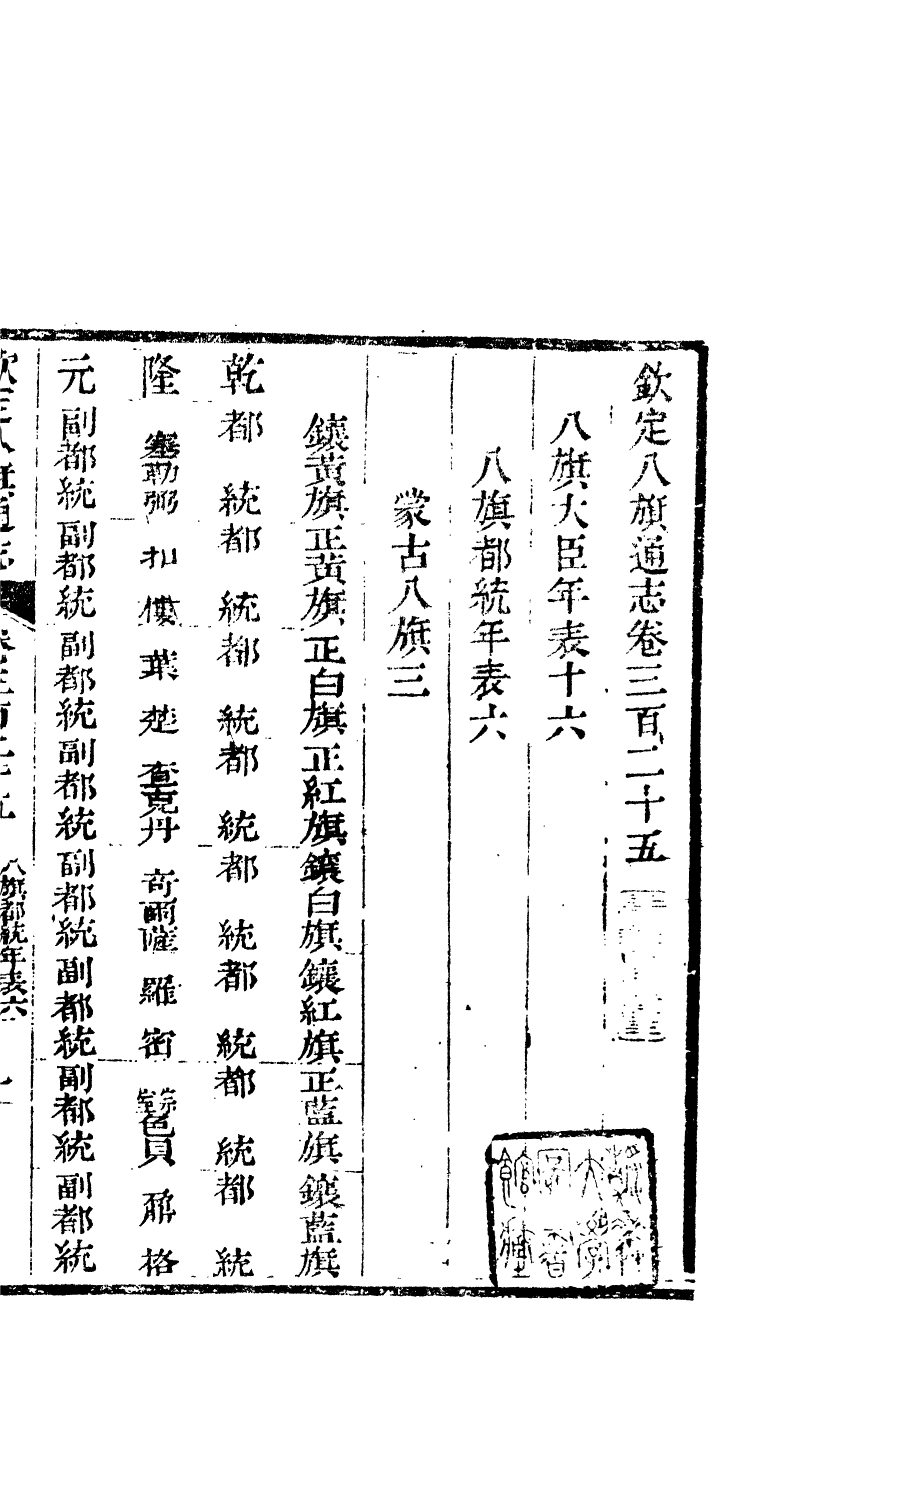 欽定八旗通志卷三百二十五
八旗大臣年表十六
八旗都統年表六
蒙古八旗三
鑲黃旗正黃旗正白旗正紅旗鑲白旗鑲紅旗正藍旗鑲藍旗
乾都統都統都統都統都統都統都統都統
隆塞勒弼扣僂葉楚查克丹奇爾薩羅密色貝鼐格
元副都統副都統副都統副都統副都統副都統副都統副都統
八旗都統年表六